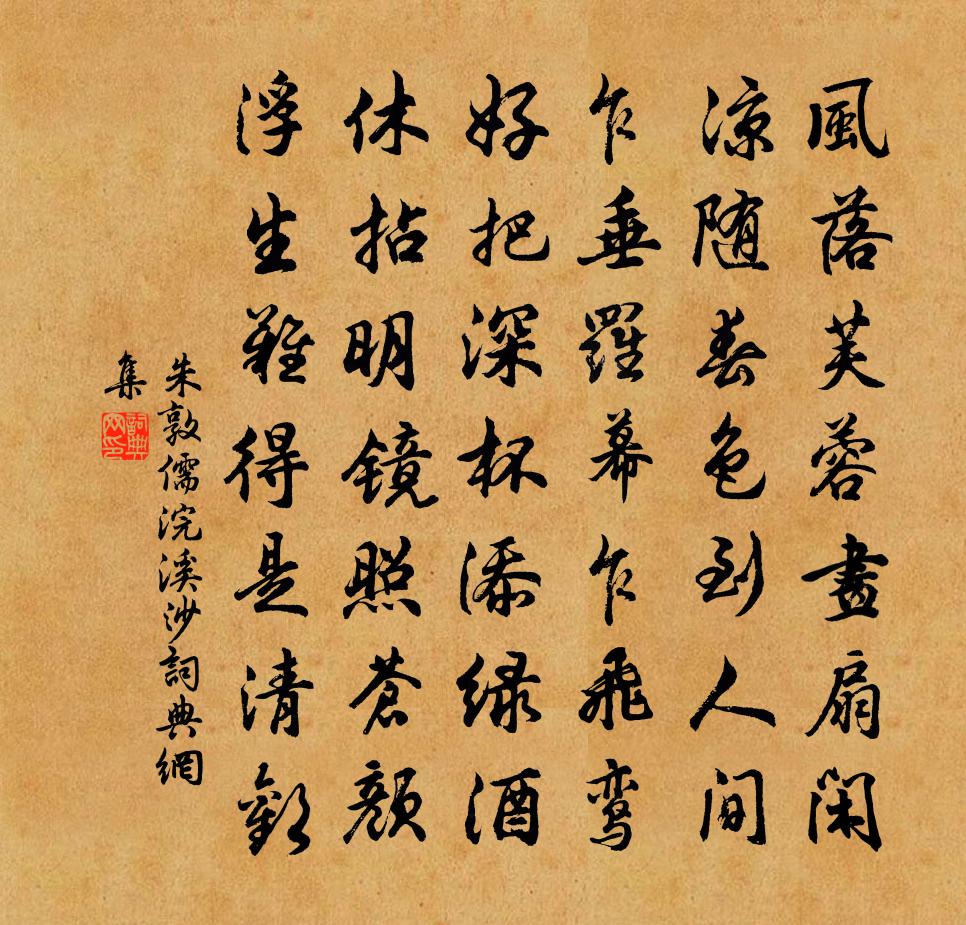 風落芙蓉畫扇閑
涼随春色到人間
乍垂羅幕乍飛鸾
好把深杯添绿酒
休拈明镜照蒼顔
浮生難得是清歡
朱敦儒浣溪沙詞典網
集
詞典网印